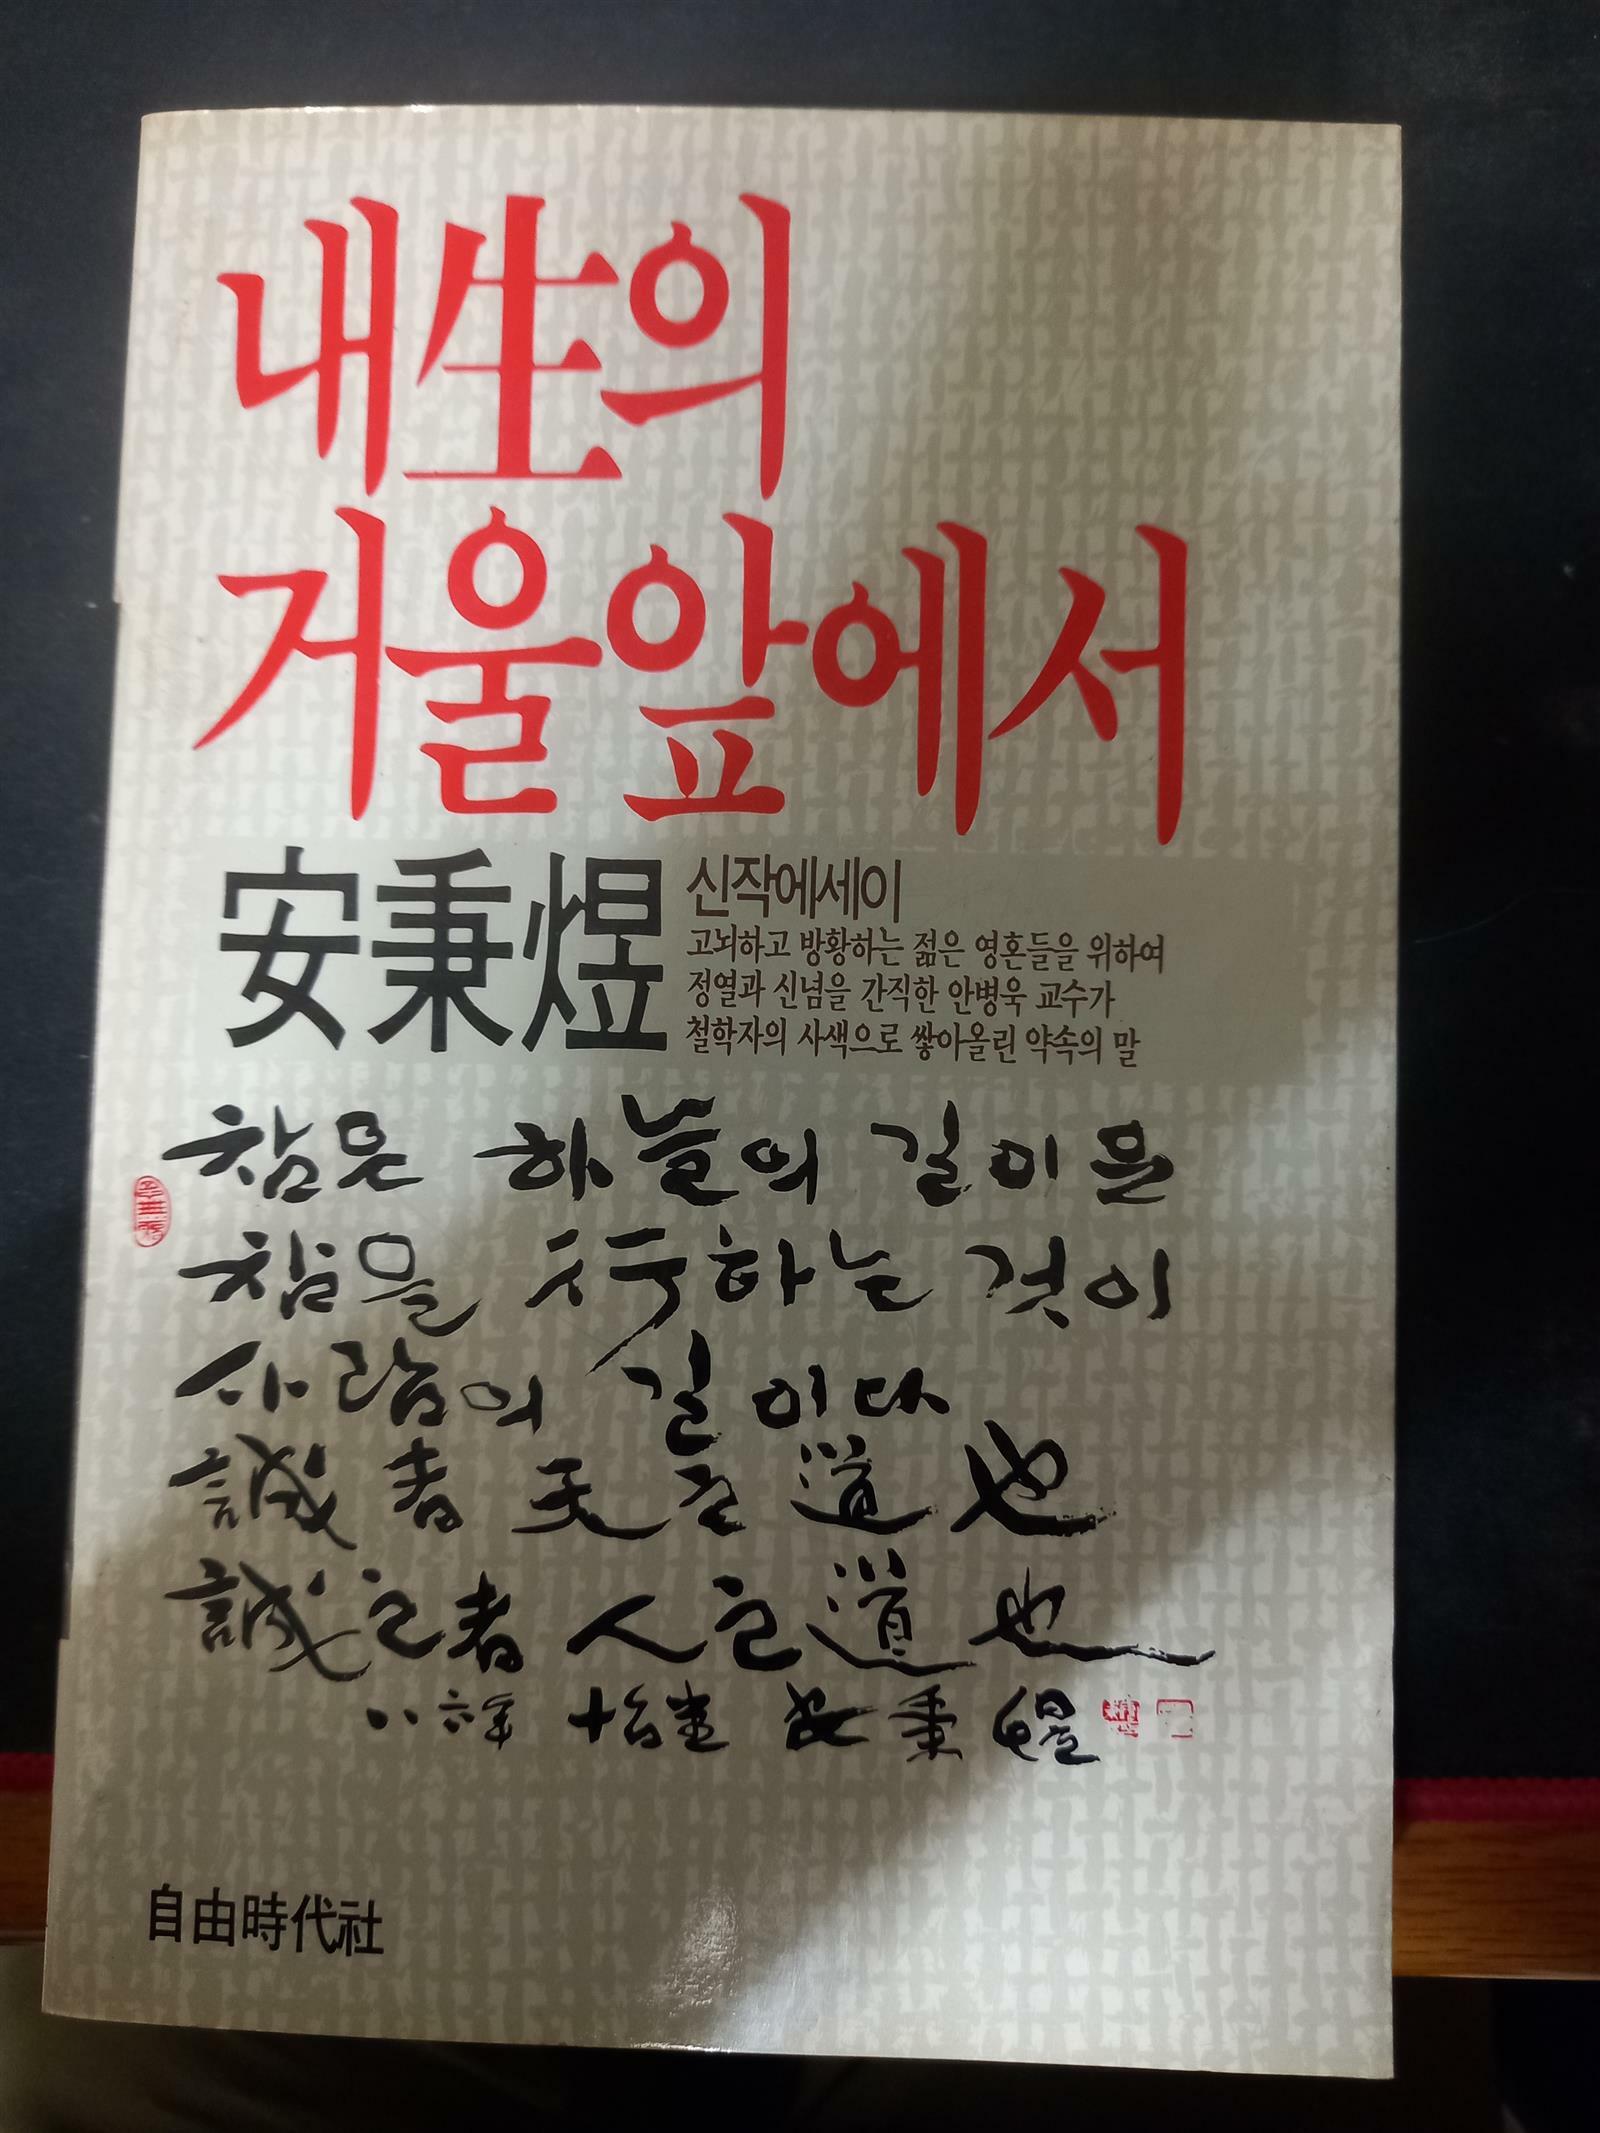 내生의
거울앞에서
安秉煜
신작에세이
고뇌하고 방황하는 젊은 영혼들을 위하여
정열과 신념을 간직한 안병욱 교수가
철학자의 사색으로 쌓아올린 약속의 말
참은 하늘의 길이믄
참을 行하는 것이
사람의 길이다
誠者天之道也
誠之者人之道也
安秉煜
自由時代社